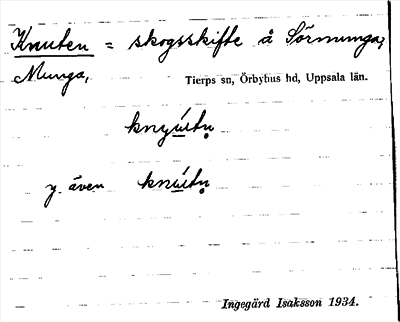 Knuten = skogsskifte å Sörmunga,
Munga,
Tierps sn, Örbyhus hd, Uppsala län.
y. även
Ingegärd Isaksson 1934.